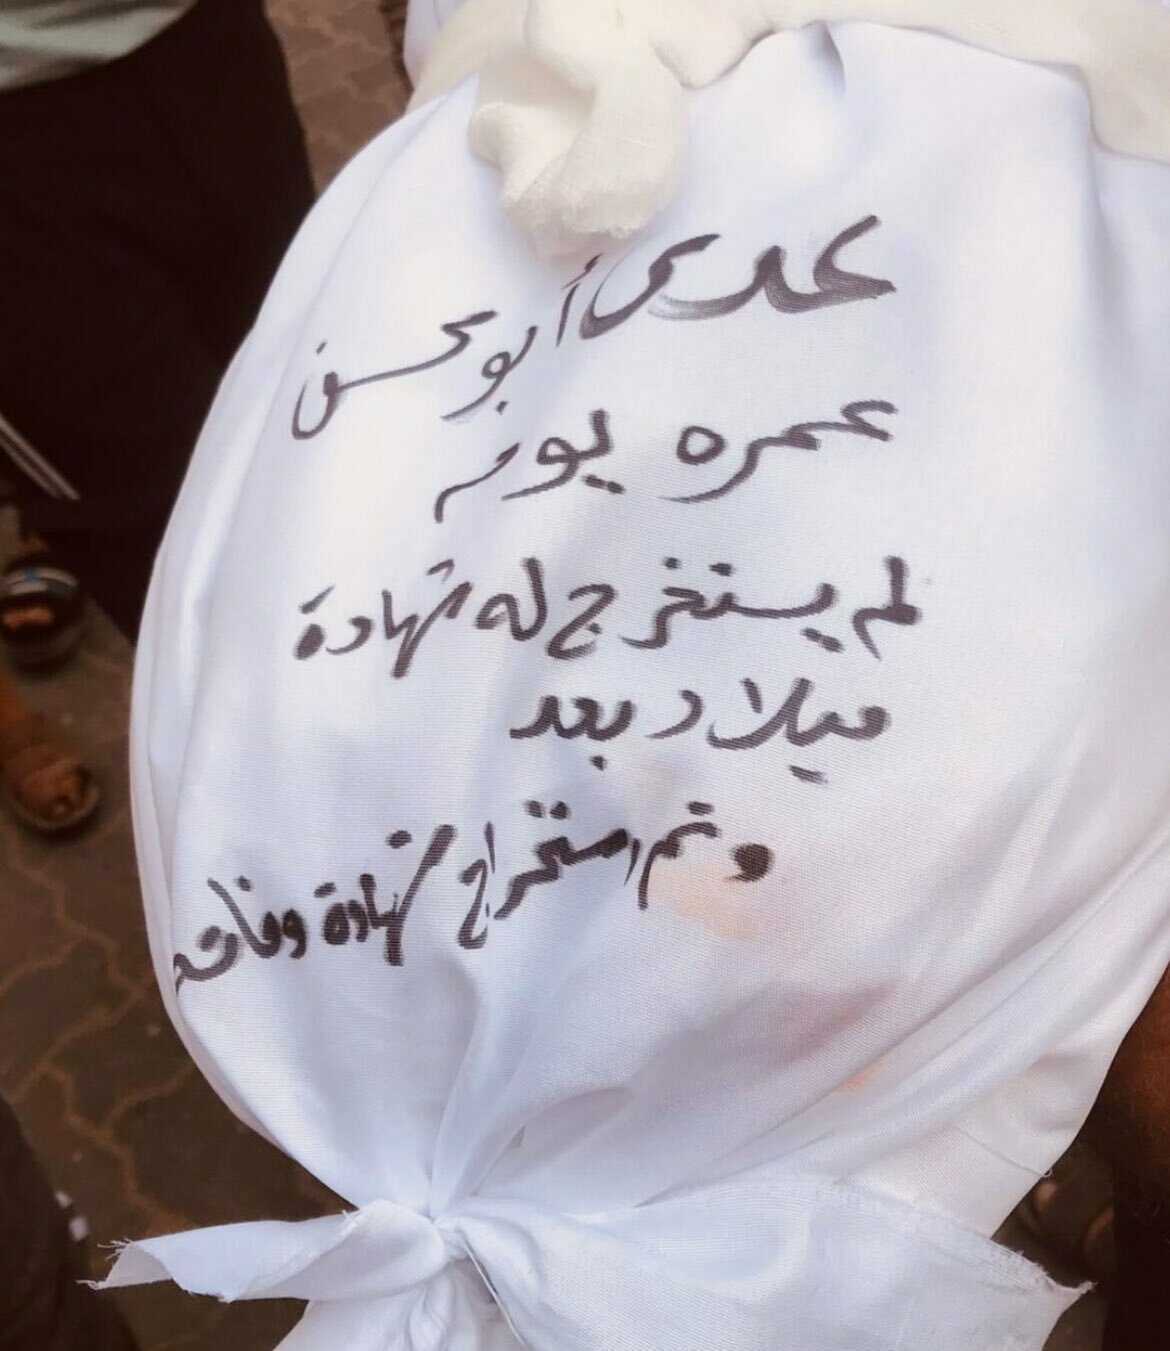 عدى أبو محسن
عمره يوم
لم يستخرج له شهادة
ميلاد بعد
وتم استخراج شهادة وفاته